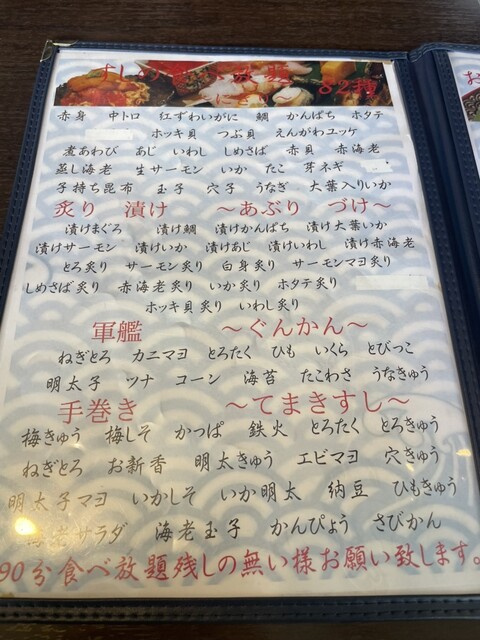 すしの食べ放題 82種
にぎり
赤身 中トロ 紅ずわいがに 鯛 かんぱち ホタテ
ホッキ貝 つぶ貝 えんがわユッケ
煮あわび あじ いわし しめさば 赤貝 赤海老
蒸し海老 生サーモン いか たこ 芽ネギ
子持ち昆布 玉子 穴子 うなぎ 大葉入りいか
炙り 漬け ～あぶり づけ～
漬けまぐろ 漬け鯛 漬けかんぱち 漬け大葉いか
漬けサーモン 漬けいか 漬けあじ 漬けいわし 漬け赤海老
とろ炙り サーモン炙り 白身炙り サーモンマヨ炙り
しめさば炙り 赤海老炙り いか炙り ホタテ炙り
ホッキ貝炙り いわし炙り
軍艦 ～ぐんかん～
ねぎとろ カニマヨ とろたく ひも いくら とびっこ
明太子 ツナ コーン 海苔 たこわさ うなきゅう
手巻き ～てまきすし～
梅きゅう 梅しそ かっぱ 鉄火 とろたく とろきゅう
ねぎとろ お新香 明太きゅう エビマヨ 穴きゅう
明太子マヨ いかしそ いか明太 納豆 ひもきゅう
海老サラダ 海老玉子 かんぴょう さびかん
90分食べ放題残しの無い様お願い致します。
お